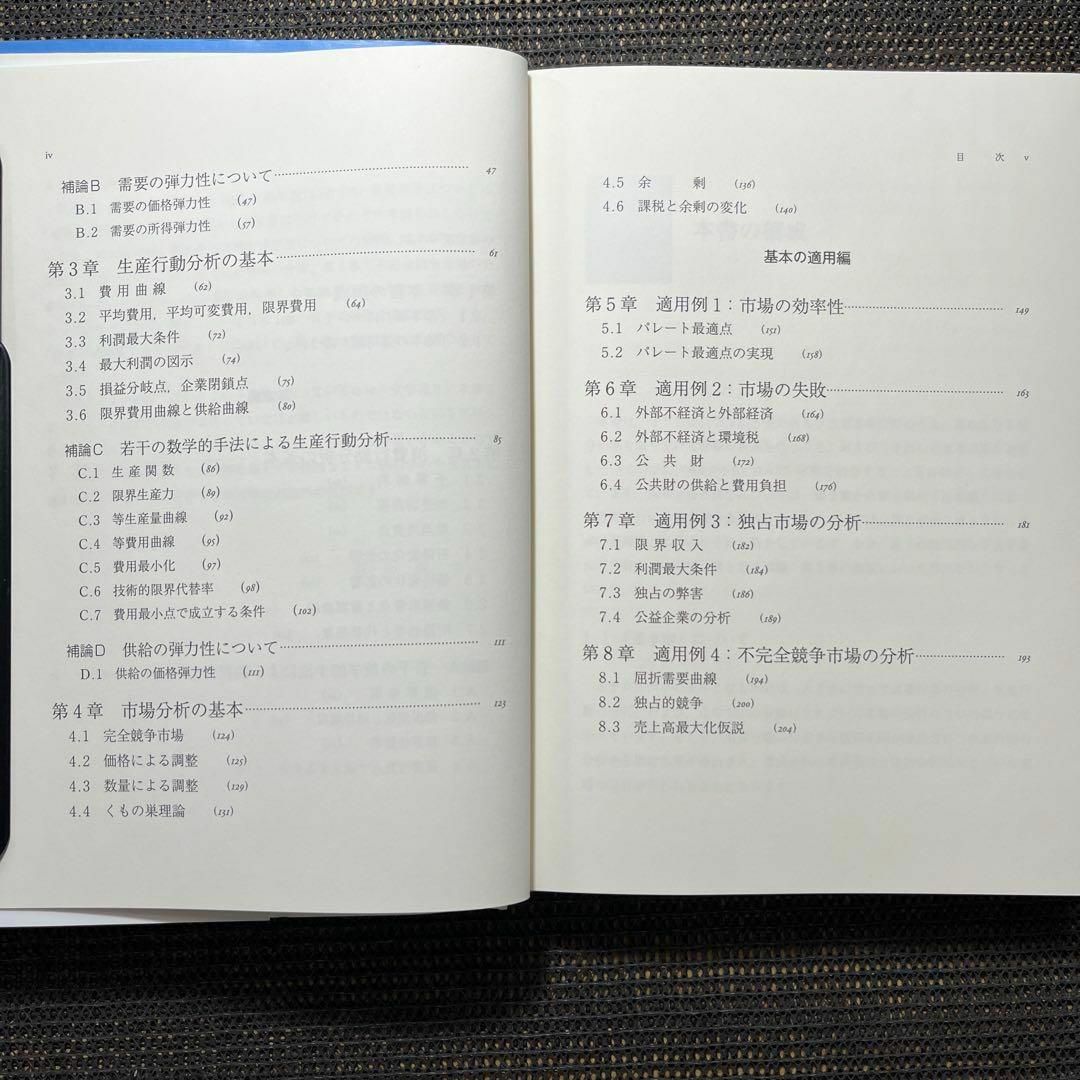 iv
補論B 需要の弾力性について…………………………… 47
B.1 需要の価格弾力性 (47)
B.2 需要の所得弾力性 (57)
第3章 生産行動分析の基本…………………………… 61
3.1 費用曲線 (62)
3.2 平均費用，平均可変費用，限界費用 (64)
3.3 利潤最大条件 (72)
3.4 最大利潤の図示 (74)
3.5 損益分岐点，企業閉鎖点 (75)
3.6 限界費用曲線と供給曲線 (80)
補論C 若干の数学的手法による生産行動分析…………… 85
C.1 生産関数 (86)
C.2 限界生産力 (89)
C.3 等生産量曲線 (92)
C.4 等費用曲線 (95)
C.5 費用最小化 (97)
C.6 技術的限界代替率 (98)
C.7 費用最小点で成立する条件 (102)
補論D 供給の弾力性について…………………………… 111
D.1 供給の価格弾力性 (111)
第4章 市場分析の基本…………………………… 123
4.1 完全競争市場 (124)
4.2 価格による調整 (125)
4.3 数量による調整 (129)
4.4 くもの巣理論 (131)
目 次 v
4.5 余 剰 (136)
4.6 課税と余剰の変化 (140)
基本の適用編
第5章 適用例1：市場の効率性…………………… 149
5.1 パレート最適点 (151)
5.2 パレート最適点の実現 (158)
第6章 適用例2：市場の失敗…………………… 163
6.1 外部不経済と外部経済 (164)
6.2 外部不経済と環境税 (168)
6.3 公共財 (172)
6.4 公共財の供給と費用負担 (176)
第7章 適用例3：独占市場の分析………………… 181
7.1 限界収入 (182)
7.2 利潤最大条件 (184)
7.3 独占の弊害 (186)
7.4 公益企業の分析 (189)
第8章 適用例4：不完全競争市場の分析…………… 193
8.1 屈折需要曲線 (194)
8.2 独占的競争 (200)
8.3 売上高最大化仮説 (204)